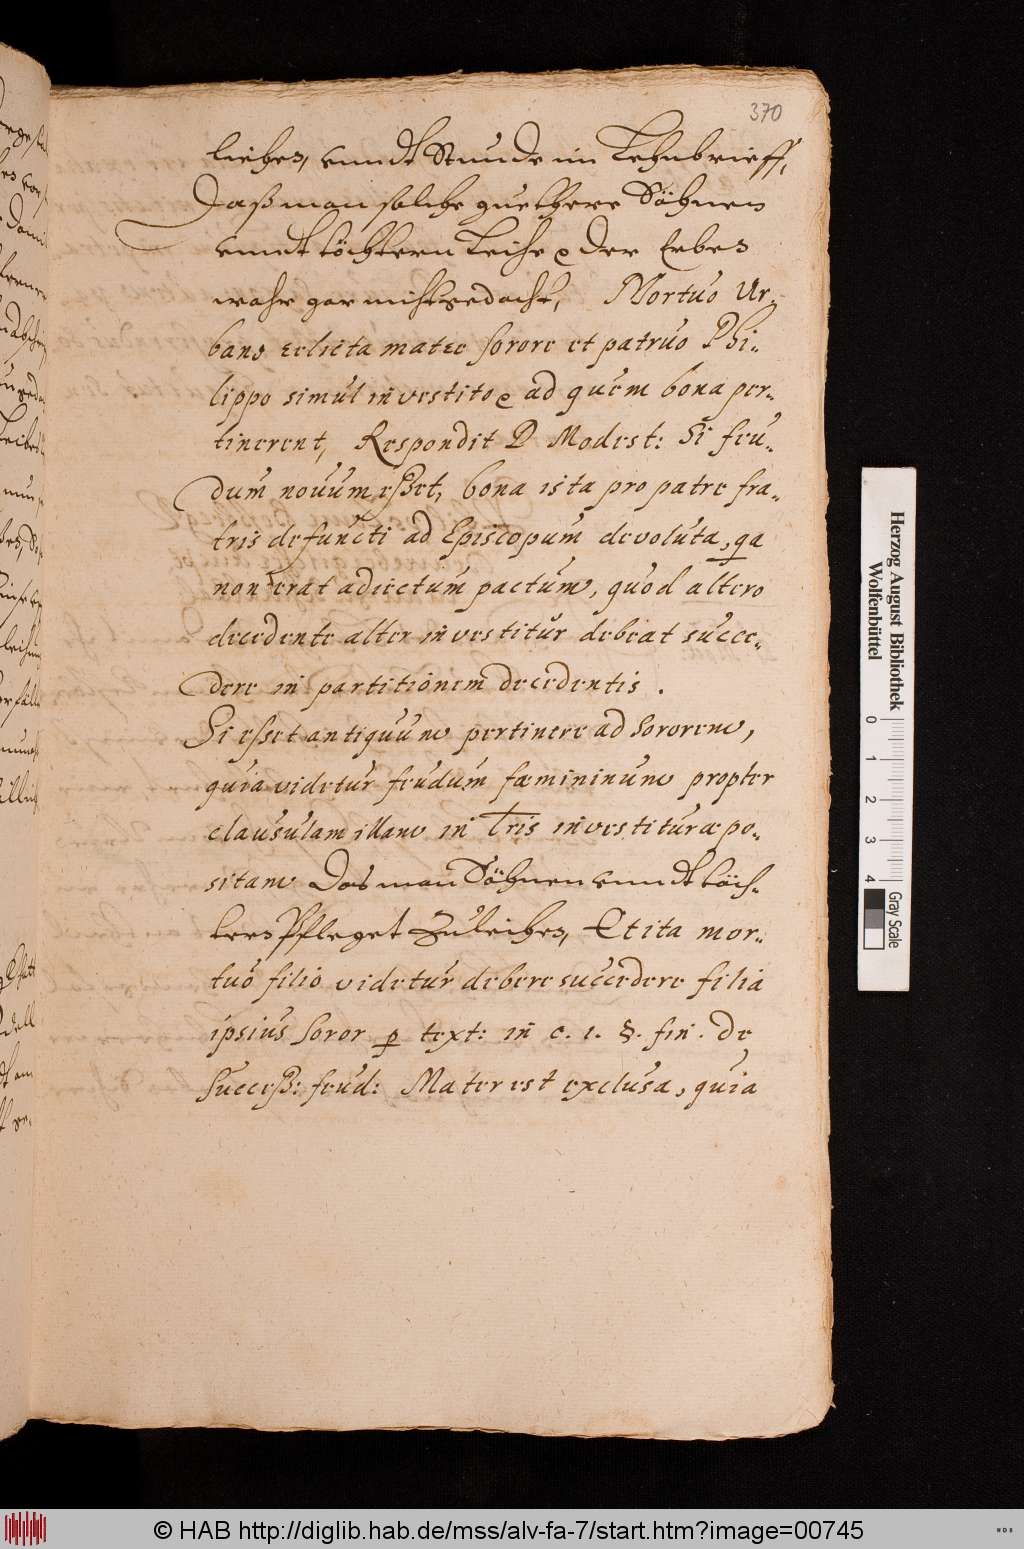 370
liehen, vnndt Stunde im Lehnbrieff,
Daß man solche guethere Söhnen
vnndt töchtern Leihe, der Erben
wahr gar nicht gedacht, Mortuo Ur-
bano relicta mater sorore et patruo Phi-
lippo simul investito, ad quem bona per-
tinerent, Respondit D Modest: Si feu-
dum nouum esset, bona ista pro patre fra-
tris defuncti ad Episcopum devoluta, qa
non erat adiectum pactum, quod altero
decedente alter investitur debeat succe-
dere in partitionem decedentis.
Si esset antiquum pertinere ad sororem,
quia videtur feudum fœmininum propter
clausulam illam in Lris investituræ po-
sitam Das man Söhnen vnndt töch-
tern Pfleget Zu leihen, Et ita mor-
tuo filio videtur debere succedere filia
ipsius soror p text: in c. 1. §. fin. de
Success: feud: Mater est exclusa, quia
Herzog August Bibliothek
Wolfenbüttel
0 1 2 3 4
Gray Scale
© HAB http://diglib.hab.de/mss/alv-fa-7/start.htm?image=00745